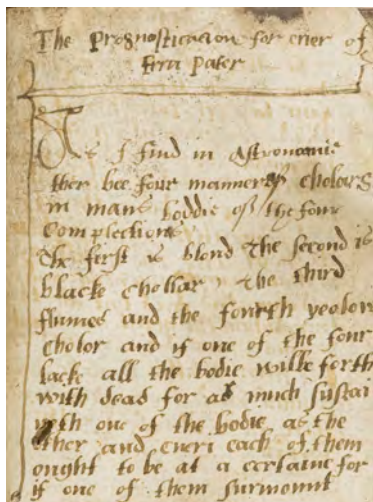 The Prognosticacion for ever of
Erra Pater
As I find in Astronomie
ther bee four manner of Cholars
in mans boddie of the four
Complections
The first is blond the second is
blacke Chollar, the third
flumes and the fourth yeolow
Cholor and if one of the four
lack all the bodie wilbe forth
with dead for as much sustai
with one of the bodie as the
other and everi each of them
ought to be at a certaine for
if one of them surmount